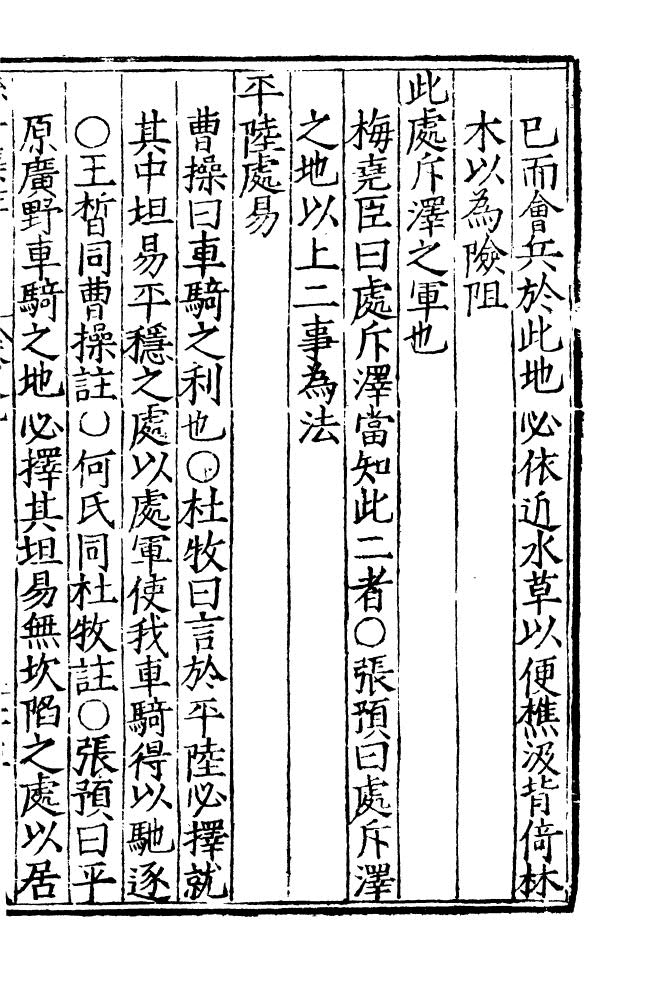 已而會兵於此地必依近水草以便樵汲背倚林
木以為險阻
此處斥澤之軍也
梅堯臣曰處斥澤當知此二者○張預曰處斥澤
之地以上二事為法
平陸處易
曹操曰車騎之利也○杜牧曰言於平陸必擇就
其中坦易平穩之處以處軍使我車騎得以馳逐
○王晳同曹操註○何氏同杜牧註○張預曰平
原廣野車騎之地必擇其坦易無坎陷之處以居